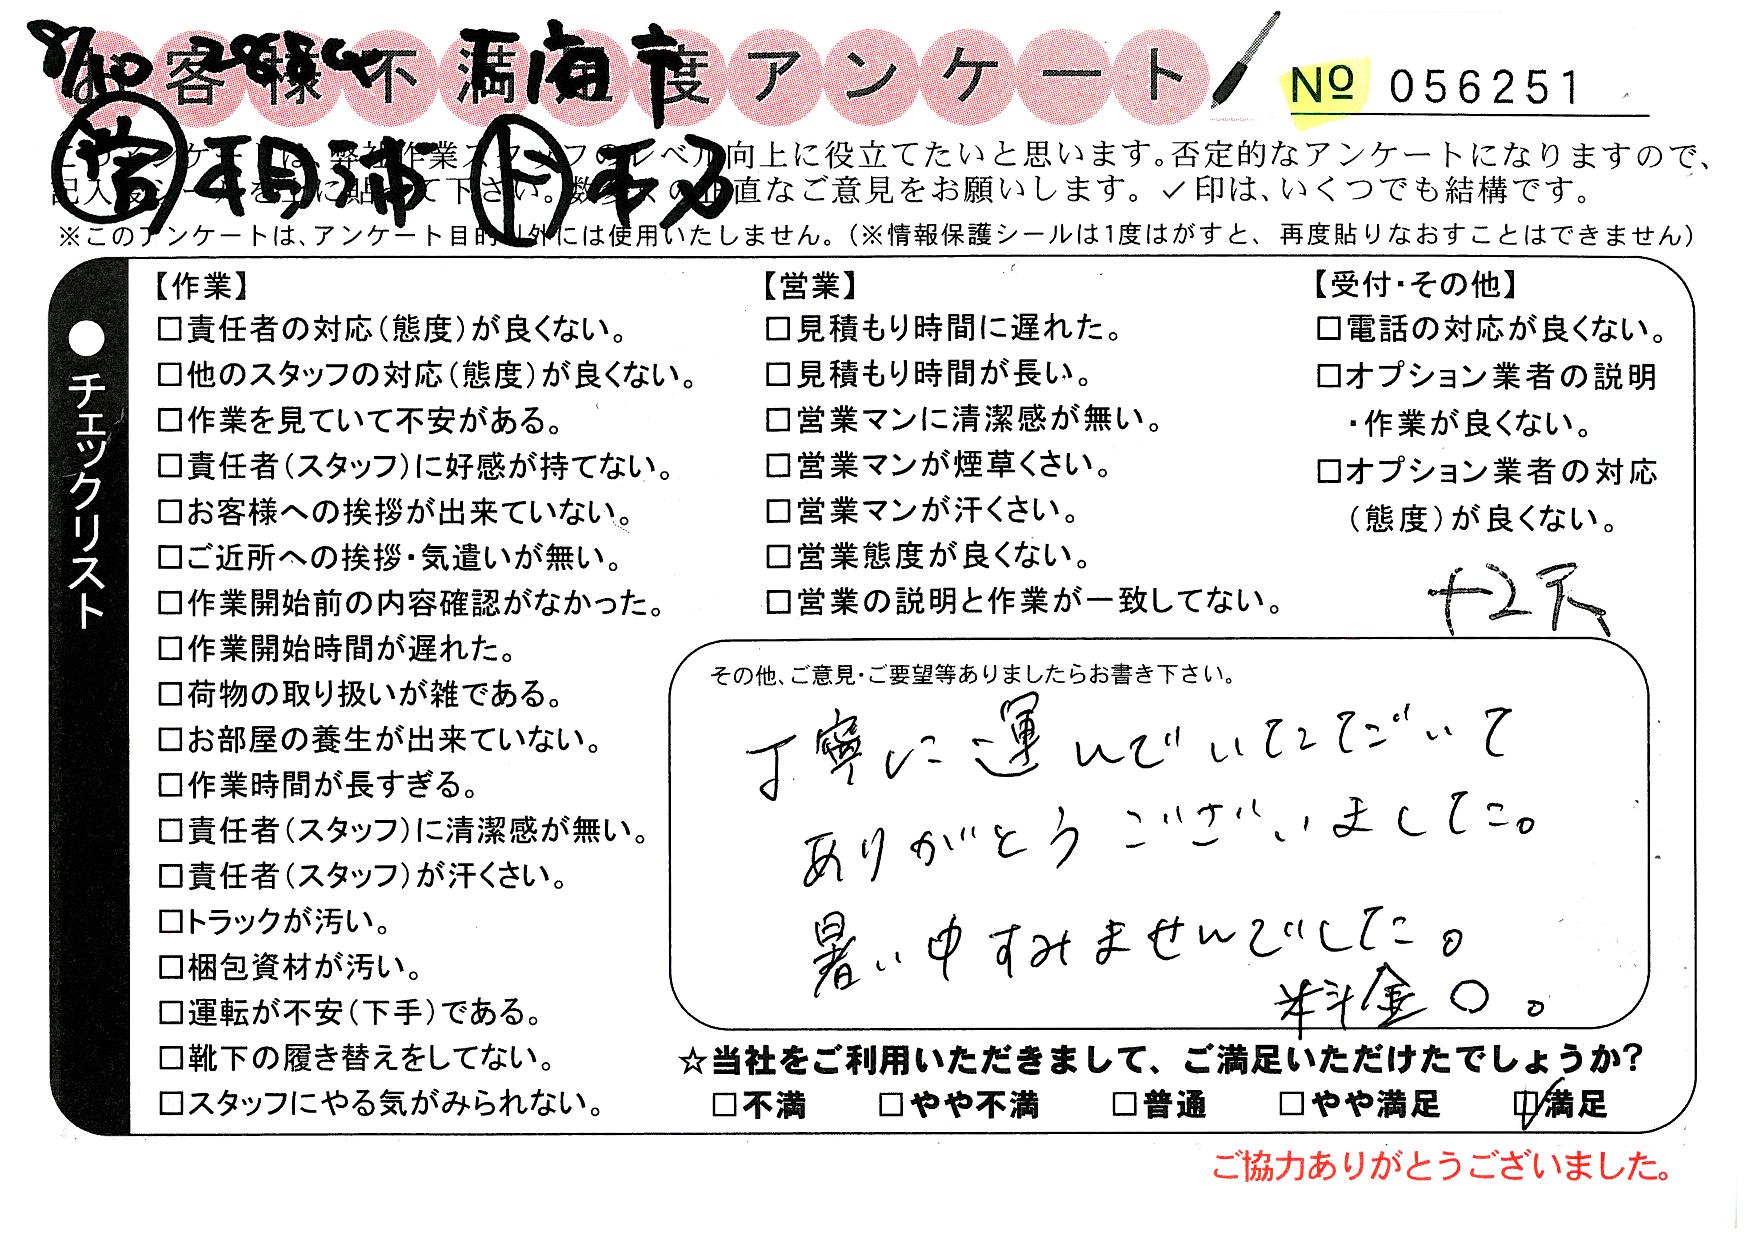 8/10
お客様不満足度アンケート
No 056251
このアンケートは、弊社作業スタッフのレベル向上に役立てたいと思います。否定的なアンケートになりますので、
記入後シールを上に貼って下さい。数多くの正直なご意見をお願いします。✓印は、いくつでも結構です。
※このアンケートは、アンケート目的以外には使用いたしません。(※情報保護シールは1度はがすと、再度貼りなおすことはできません)
●チェックリスト
【作業】
□責任者の対応(態度)が良くない。
□他のスタッフの対応(態度)が良くない。
□作業を見ていて不安がある。
□責任者(スタッフ)に好感が持てない。
□お客様への挨拶が出来ていない。
□ご近所への挨拶・気遣いが無い。
□作業開始前の内容確認がなかった。
□作業開始時間が遅れた。
□荷物の取り扱いが雑である。
□お部屋の養生が出来ていない。
□作業時間が長すぎる。
□責任者(スタッフ)に清潔感が無い。
□責任者(スタッフ)が汗くさい。
□トラックが汚い。
□梱包資材が汚い。
□運転が不安(下手)である。
□靴下の履き替えをしてない。
□スタッフにやる気がみられない。
【営業】
□見積もり時間に遅れた。
□見積もり時間が長い。
□営業マンに清潔感が無い。
□営業マンが煙草くさい。
□営業マンが汗くさい。
□営業態度が良くない。
□営業の説明と作業が一致してない。
【受付・その他】
□電話の対応が良くない。
□オプション業者の説明
・作業が良くない。
□オプション業者の対応
(態度)が良くない。
その他、ご意見・ご要望等ありましたらお書き下さい。
丁寧に運んでいただいて
ありがとうございました。
暑い中すみませんでした。
料金○。
☆当社をご利用いただきまして、ご満足いただけたでしょうか?
□不満 □やや不満 □普通 □やや満足 ☑満足
ご協力ありがとうございました。